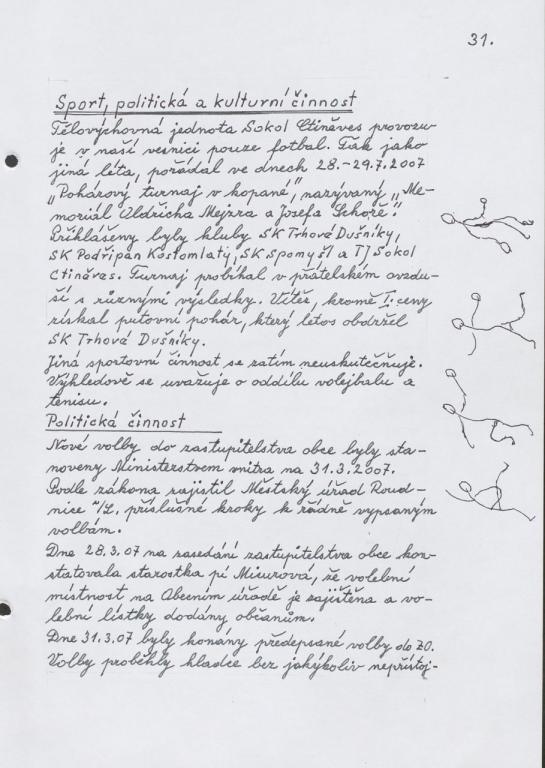 31.
Sport, politická a kulturní činnost
Tělovýchovná jednota Sokol Ctiněves provozu-
je v naší vesnici pouze fotbal. Tak jako
jiná léta, pořádal ve dnech 28.-29.7.2007
„Pohárový turnaj v kopané", nazývaný „Me-
moriál Oldřicha Mejzra a Josefa Schoře".
Přihlášeny byly kluby SK Trhová Dušníky,
SK Podřipan Kostomlaty, SK Spomyšl a TJ Sokol
Ctiněves. Turnaj probíhal v přátelském ovzdu-
ší s různými výsledky. Vítěz, kromě I. ceny
získal putovní pohár, který letos obdržel
SK Trhová Dušníky.
Jiná sportovní činnost se zatím neuskutečňuje.
Výhledově se uvažuje o oddílu volejbalu a
tenisu.
Politická činnost
Nové volby do zastupitelstva obce byly sta-
noveny Ministerstvem vnitra na 31.3.2007.
Podle zákona zajistil Městský úřad Roud-
nice n/L. příslušné kroky k řádně vypsaným
volbám.
Dne 28.3.07 na zasedání zastupitelstva obce kon-
statovala starostka pí Misurová, že volební
místnost na Obecním úřadě je zajištěna a vo-
lební lístky dodány občanům.
Dne 31.3.07 byly konány předepsané volby do ZO.
Volby proběhly hladce bez jakýkoliv nepřístoj-